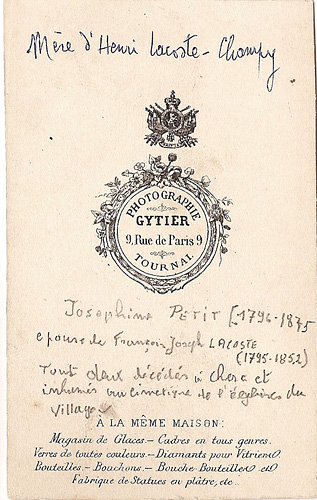 Mère d'Henri Lacoste-Champy
PHOTOGRAPHIE
GYTIER
9, Rue de Paris 9
TOURNAI
Josephine PETIT [1794-1875
epouse de François Joseph LACOSTE
(1795-1852)
Tout deux décédés à et
inhumés au cimetière de l'église du
Village
À LA MÊME MAISON:
Magasin de Glaces.- Cadres en tous genres.
Verres de toutes couleurs.- Diamants pour Vitriers
Bouteilles.- Bouchons.- Bouche-Bouteilles etc
Fabrique de Statues en plâtre, etc.